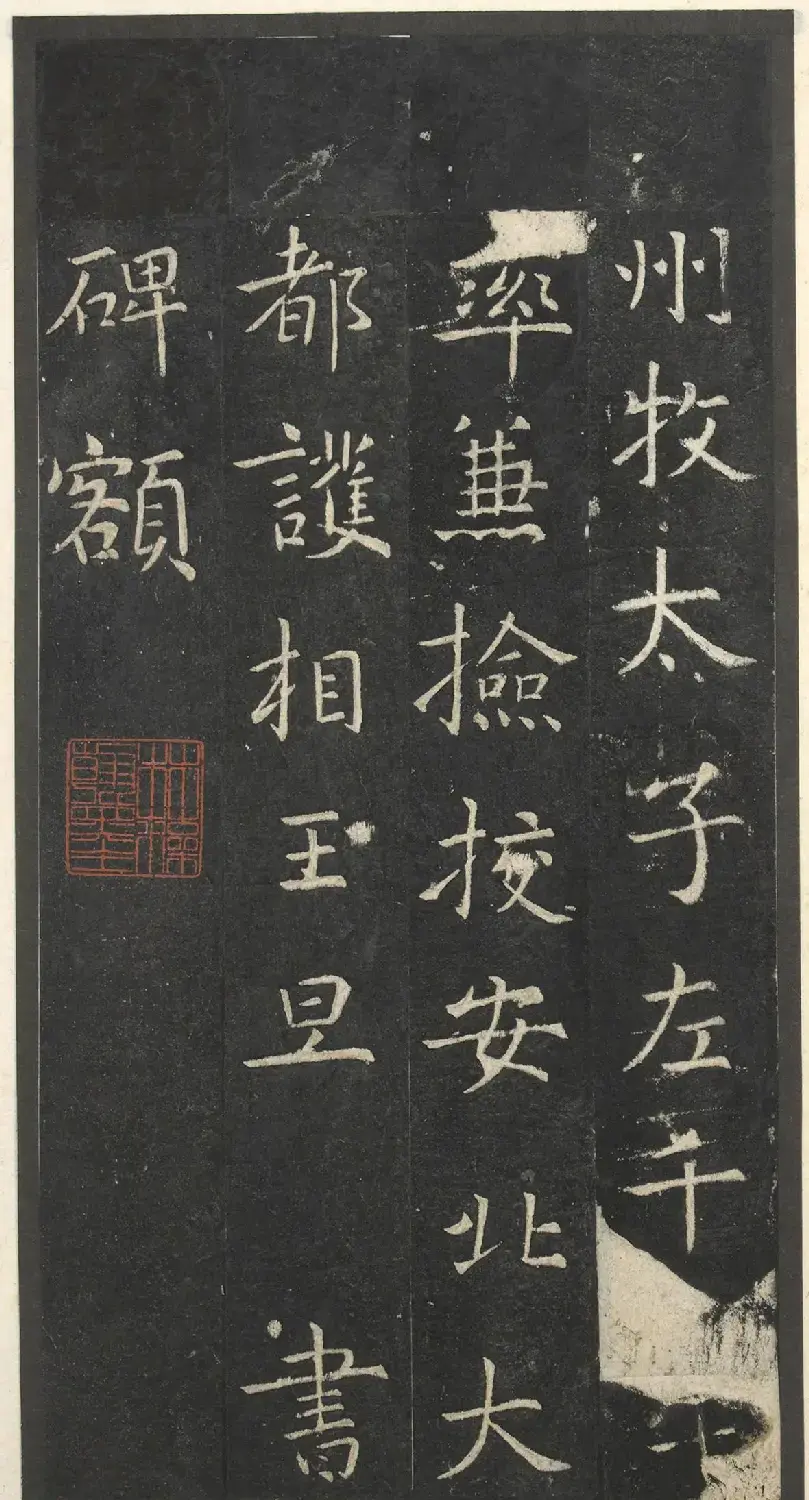 州牧太子左千
率兼撿挍安北大
都護相王旦 書
碑額